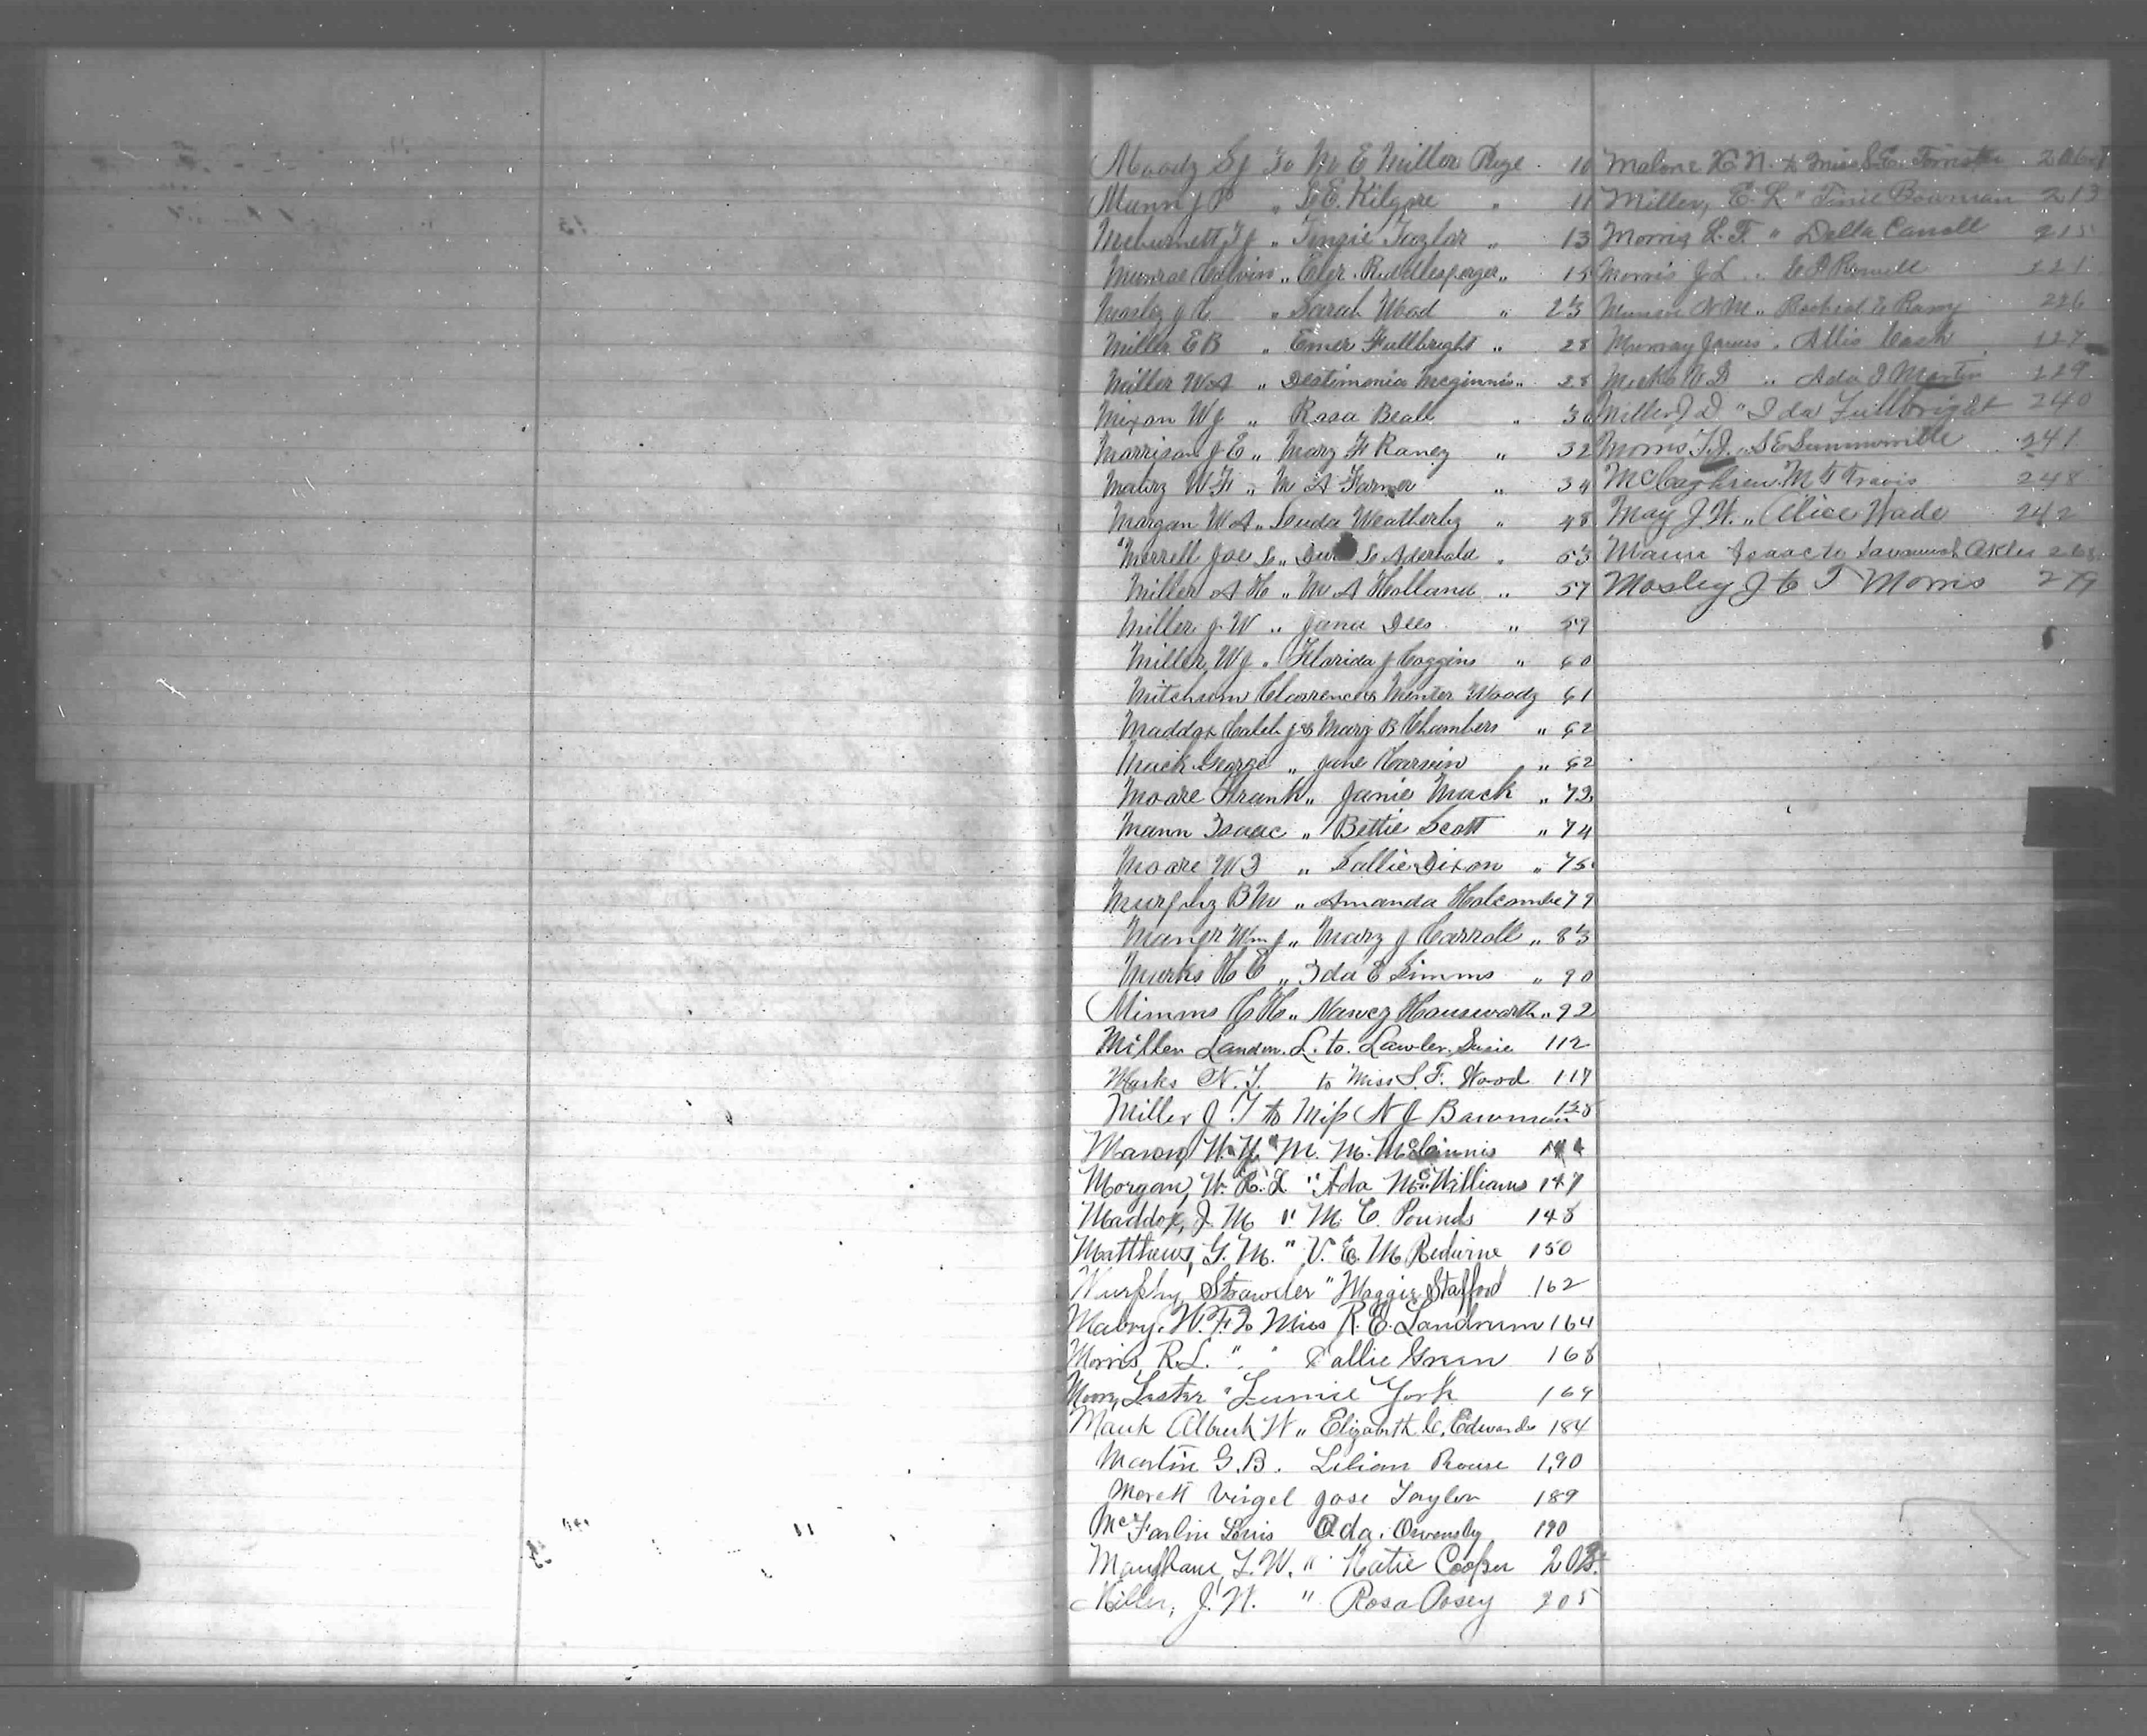 Moody S J To M E Miller Page 10
Munn J P " S E. Kilgore " 11
Mcburnett T J " Tinsie Taylor " 13
Munroe Calvin " Riddlesperger " 15
Mosley J C " Sarah Wood " 23
Miller E B " Emer Fullbright " 28
Miller W A " Destimonia Mcginnis " 28
Mixon W J " Rosa Beall " 30
Morrison J E " Mary F Raney " 32
Mabry W F " M A Farmer " 34
Morgan W A " Louda Weatherby " 48
Merrell Joe S " Aderhold " 53
Miller A H " M A Holland " 57
Miller J W " Jana Dees " 59
Miller W J " Florida J Coggins " 60
Mitchum Clarence & Minter Moody 61
Maddox Caleb J to Mary B Chambers " 62
Mack George " Jane Harvin " 62
Moore Frank " Janie Mack " 73
Mann Isaac " Bettie Scott " 74
Moore W D " Sallie Dixon " 75
Murphy B M " Amanda Holcombe 79
Wm J " Mary J Carroll " 83
Marks H C " Ida E Simms " 90
Mimms C H " Nancy Housworth " 92
Miller Landon. L. to. Lawler, Susie 112
Marks N. T. to Miss S. F. Wood 117
Miller J. T to Miss N J Bowman 128
Mason, W. H. " M. M. McGinnis
Morgan, W. R. L " Ada McWilliams 147
Maddox, J. M " M. C. Pounds 148
Matthews, G. M. " V. E. M. Redwine 150
Murphy, Strawder " Maggie Stafford 162
Mabry, W. F. To Miss R. E. Landrum 164
Morris, R. L. " " Sallie Green 168
Moore, Lester " Lunnie York 169
Mauk Albert W " Elizabeth C. Edwards 184
Martin G. B. Lilian Rouse 190
Morett Virgel Jose Taylor 189
McFarlin Louis Ada Owensby 190
L. W. " Katie Cooper 203
Miller, J. W. " Rosa Posey 205
Malone H. N. to Miss S. E. Forrister
Miller, E. L " Tinie Bowman 213
Morris L. F. " Della Carroll 215
Morris J L " 221
Munroe N M " Racheal E Raney 226
Murray James " Allis Cash 127
Meeks W D " Ada J Martin 229
Miller J D " Ida Fullbright 240
Morris T. J. " S E Summerville 241
McCaghren M F Travis 248
May J W. " Alice Wade 242
Mann Isaac to Savannah Akles
Mosley J C T Morris 279